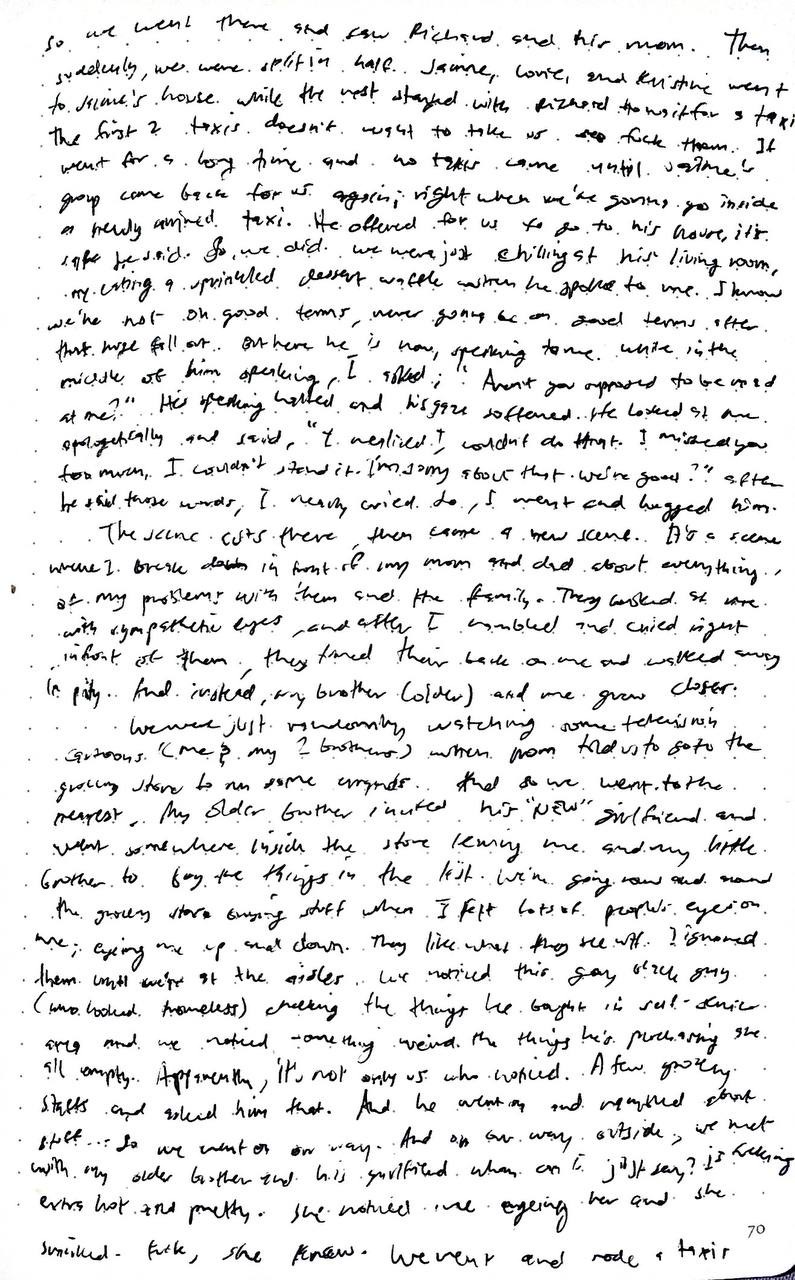 so we went there and saw Richard and his mom. Then
suddenly, we were split in half. Jaime, Lovie, and Kristine went
to Jaime's house while the rest stayed with Richard to wait for a taxi
The first 2 taxis doesn't want to take us so fuck them. It
went for a long time and no taxis came until Jaime's
group came back for us again; right when we're gonna go inside
a newly arrived taxi. He offered for us to go to his house, it's
safe he said. So, we did. We were just chilling at his living room,
me eating a sprinkled dessert waffle when he spoke to me. I know
we're not on good terms, never gonna be on good terms after
that huge fall out. But here he is now, speaking to me. While in the
middle of him speaking, I asked; "Aren't you supposed to be mad
at me?" His speaking halted and his gaze softened. He looked at me
apologetically and said, "I realized I couldn't do that. I missed you
too much, I couldn't stand it. I'm sorry about that. We're good?" after
he said those words, I nearly cried. So, I went and hugged him.
The scene cuts there, then came a new scene. It's a scene
where I break down in front of my mom and dad about everything,
of my problems with them and the family. They looked at me
with sympathetic eyes, and after I mumbled and cried right
infront of them, they turned their back on me and walked away
in pity. And instead, my brother (older) and me grew closer.
We were just randomly watching some television
cartoons (me & my 2 brothers) when mom told us to go to the
grocery store to run some errands. And so we went to the
nearest. My older brother invited his "NEW" girlfriend and
went somewhere inside the store leaving me and my little
brother to buy the things in the list. We're going round and round
the grocery store buying stuff when I felt lots of people's eyes on
me; eyeing me up and down. They like what they see wtf. I ignored
them until we're at the aisles. We noticed this gay black guy
(who looked homeless) checking the things he bought in self-service
area and we noticed something weird. The things he's purchasing are
all empty. Apparently, it's not only us who noticed. A few grocery
staffs and asked him that. And he went on and about
stuff... So we went on our way. And on our way outside, we met
with my older brother and his girlfriend whom can I just say? is freaking
extra hot and pretty. She noticed me eyeing her and she
smirked. Fuck, she knew. We went and rode a taxis
70